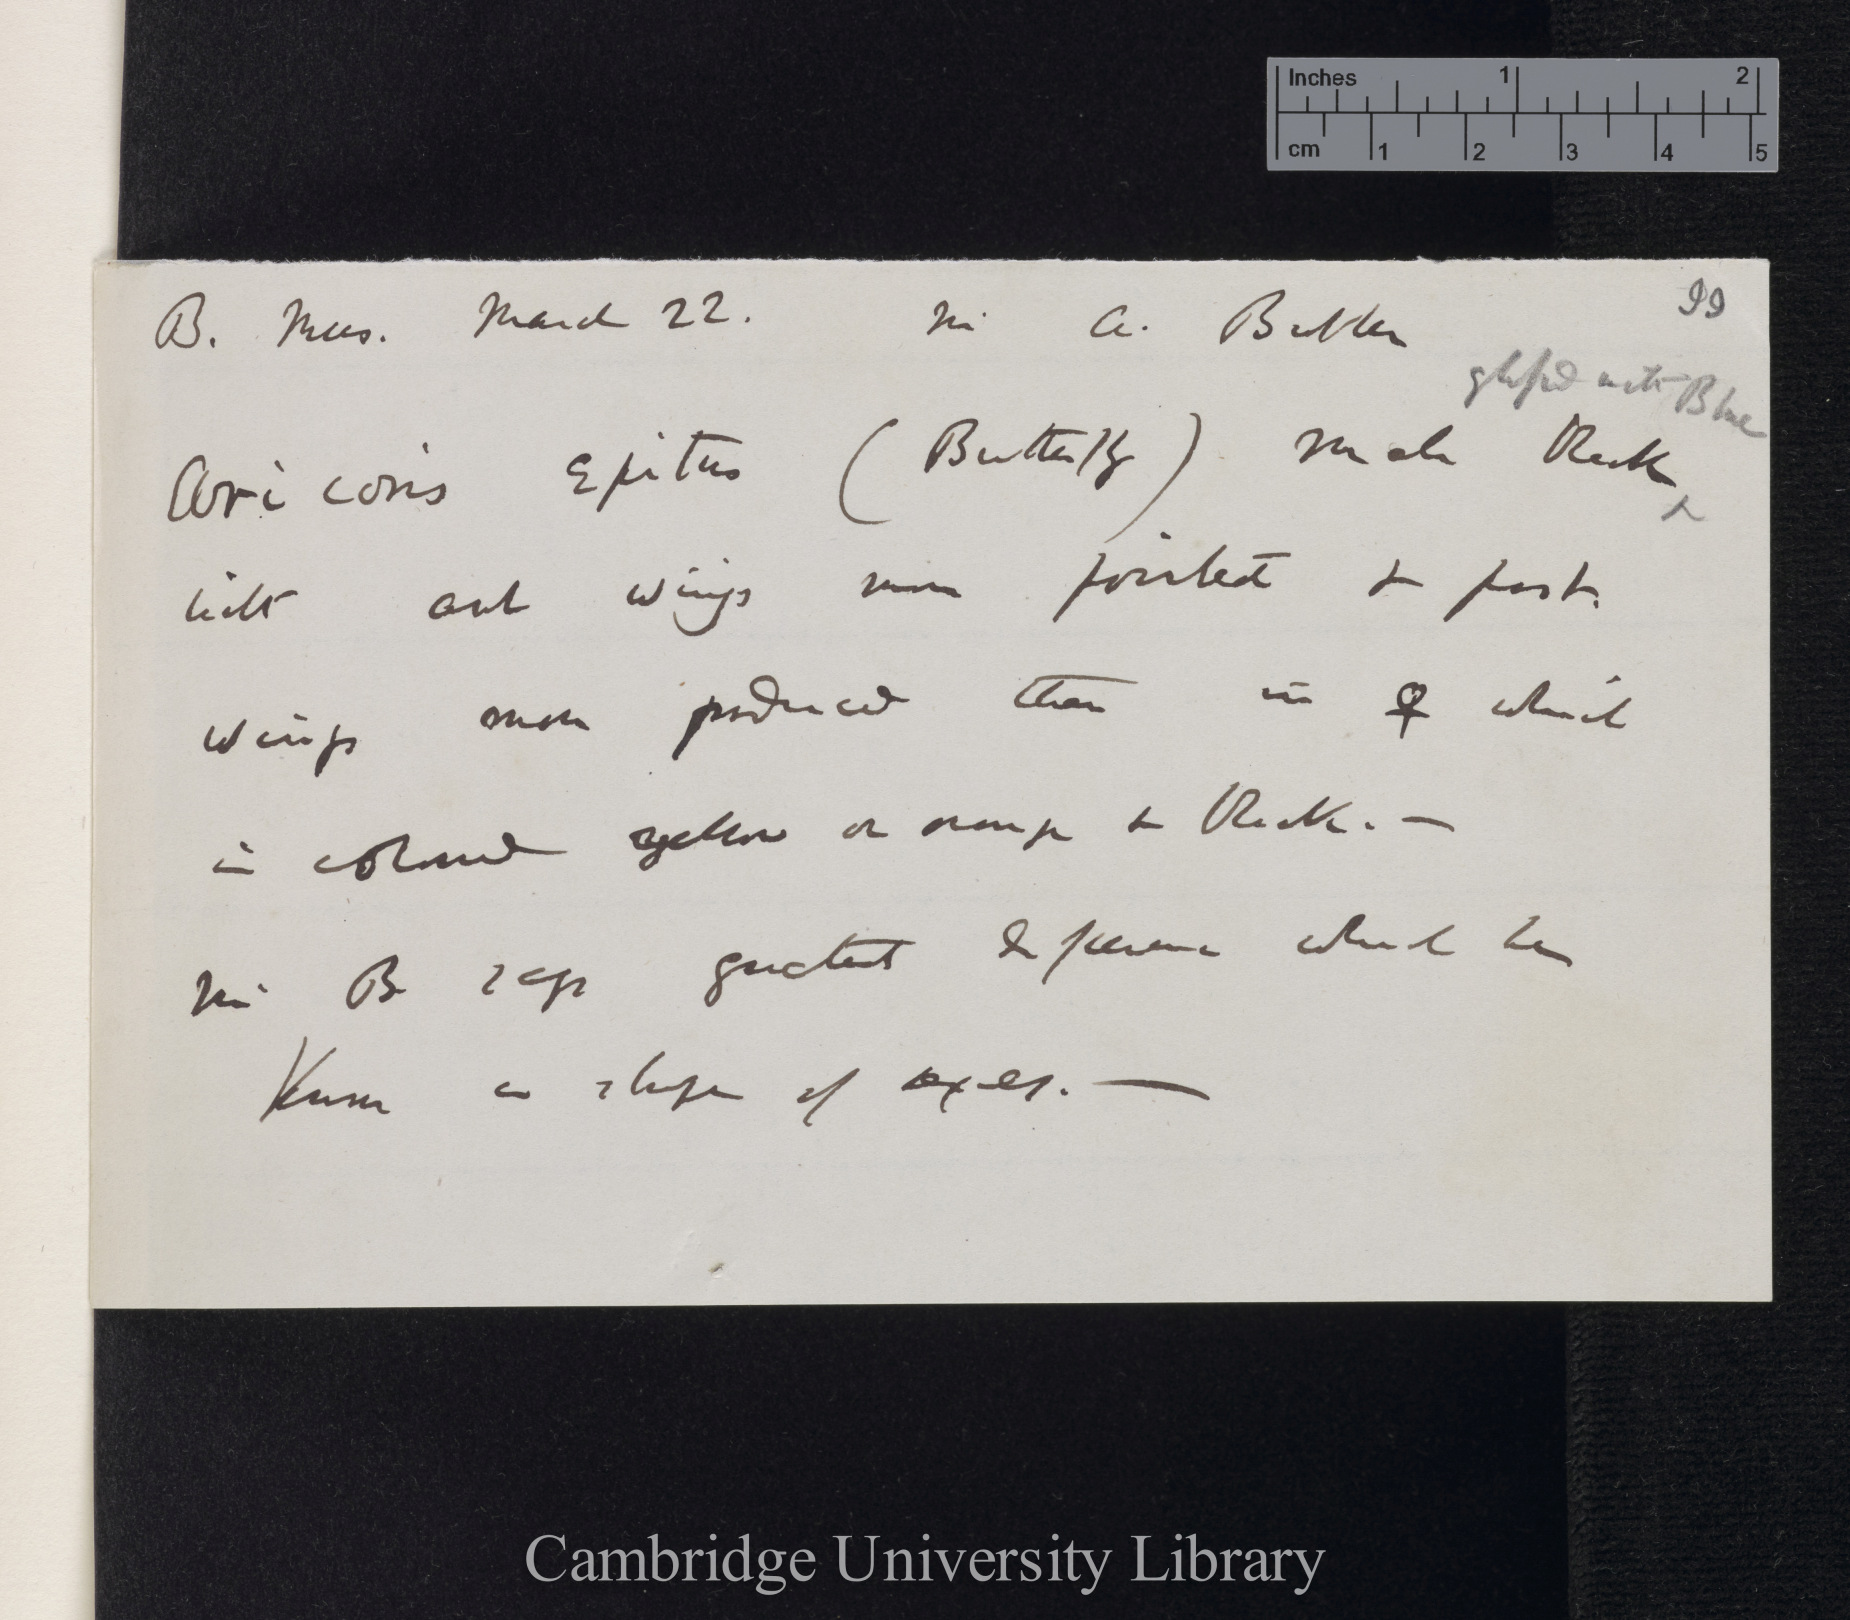 Inches 1 2
cm 1 2 3 4 5
99
B. Mus. March 22. Mr A. Butler
glossed with Blue
Aricoris Epitus (Butterfly) male Black ^
with ant wings more pointed & post.
wings more produced than in ♀ which
is coloured yellow or orange & black. —
Mr B says greatest difference which he
Knows in shape of sexes. —
Cambridge University Library